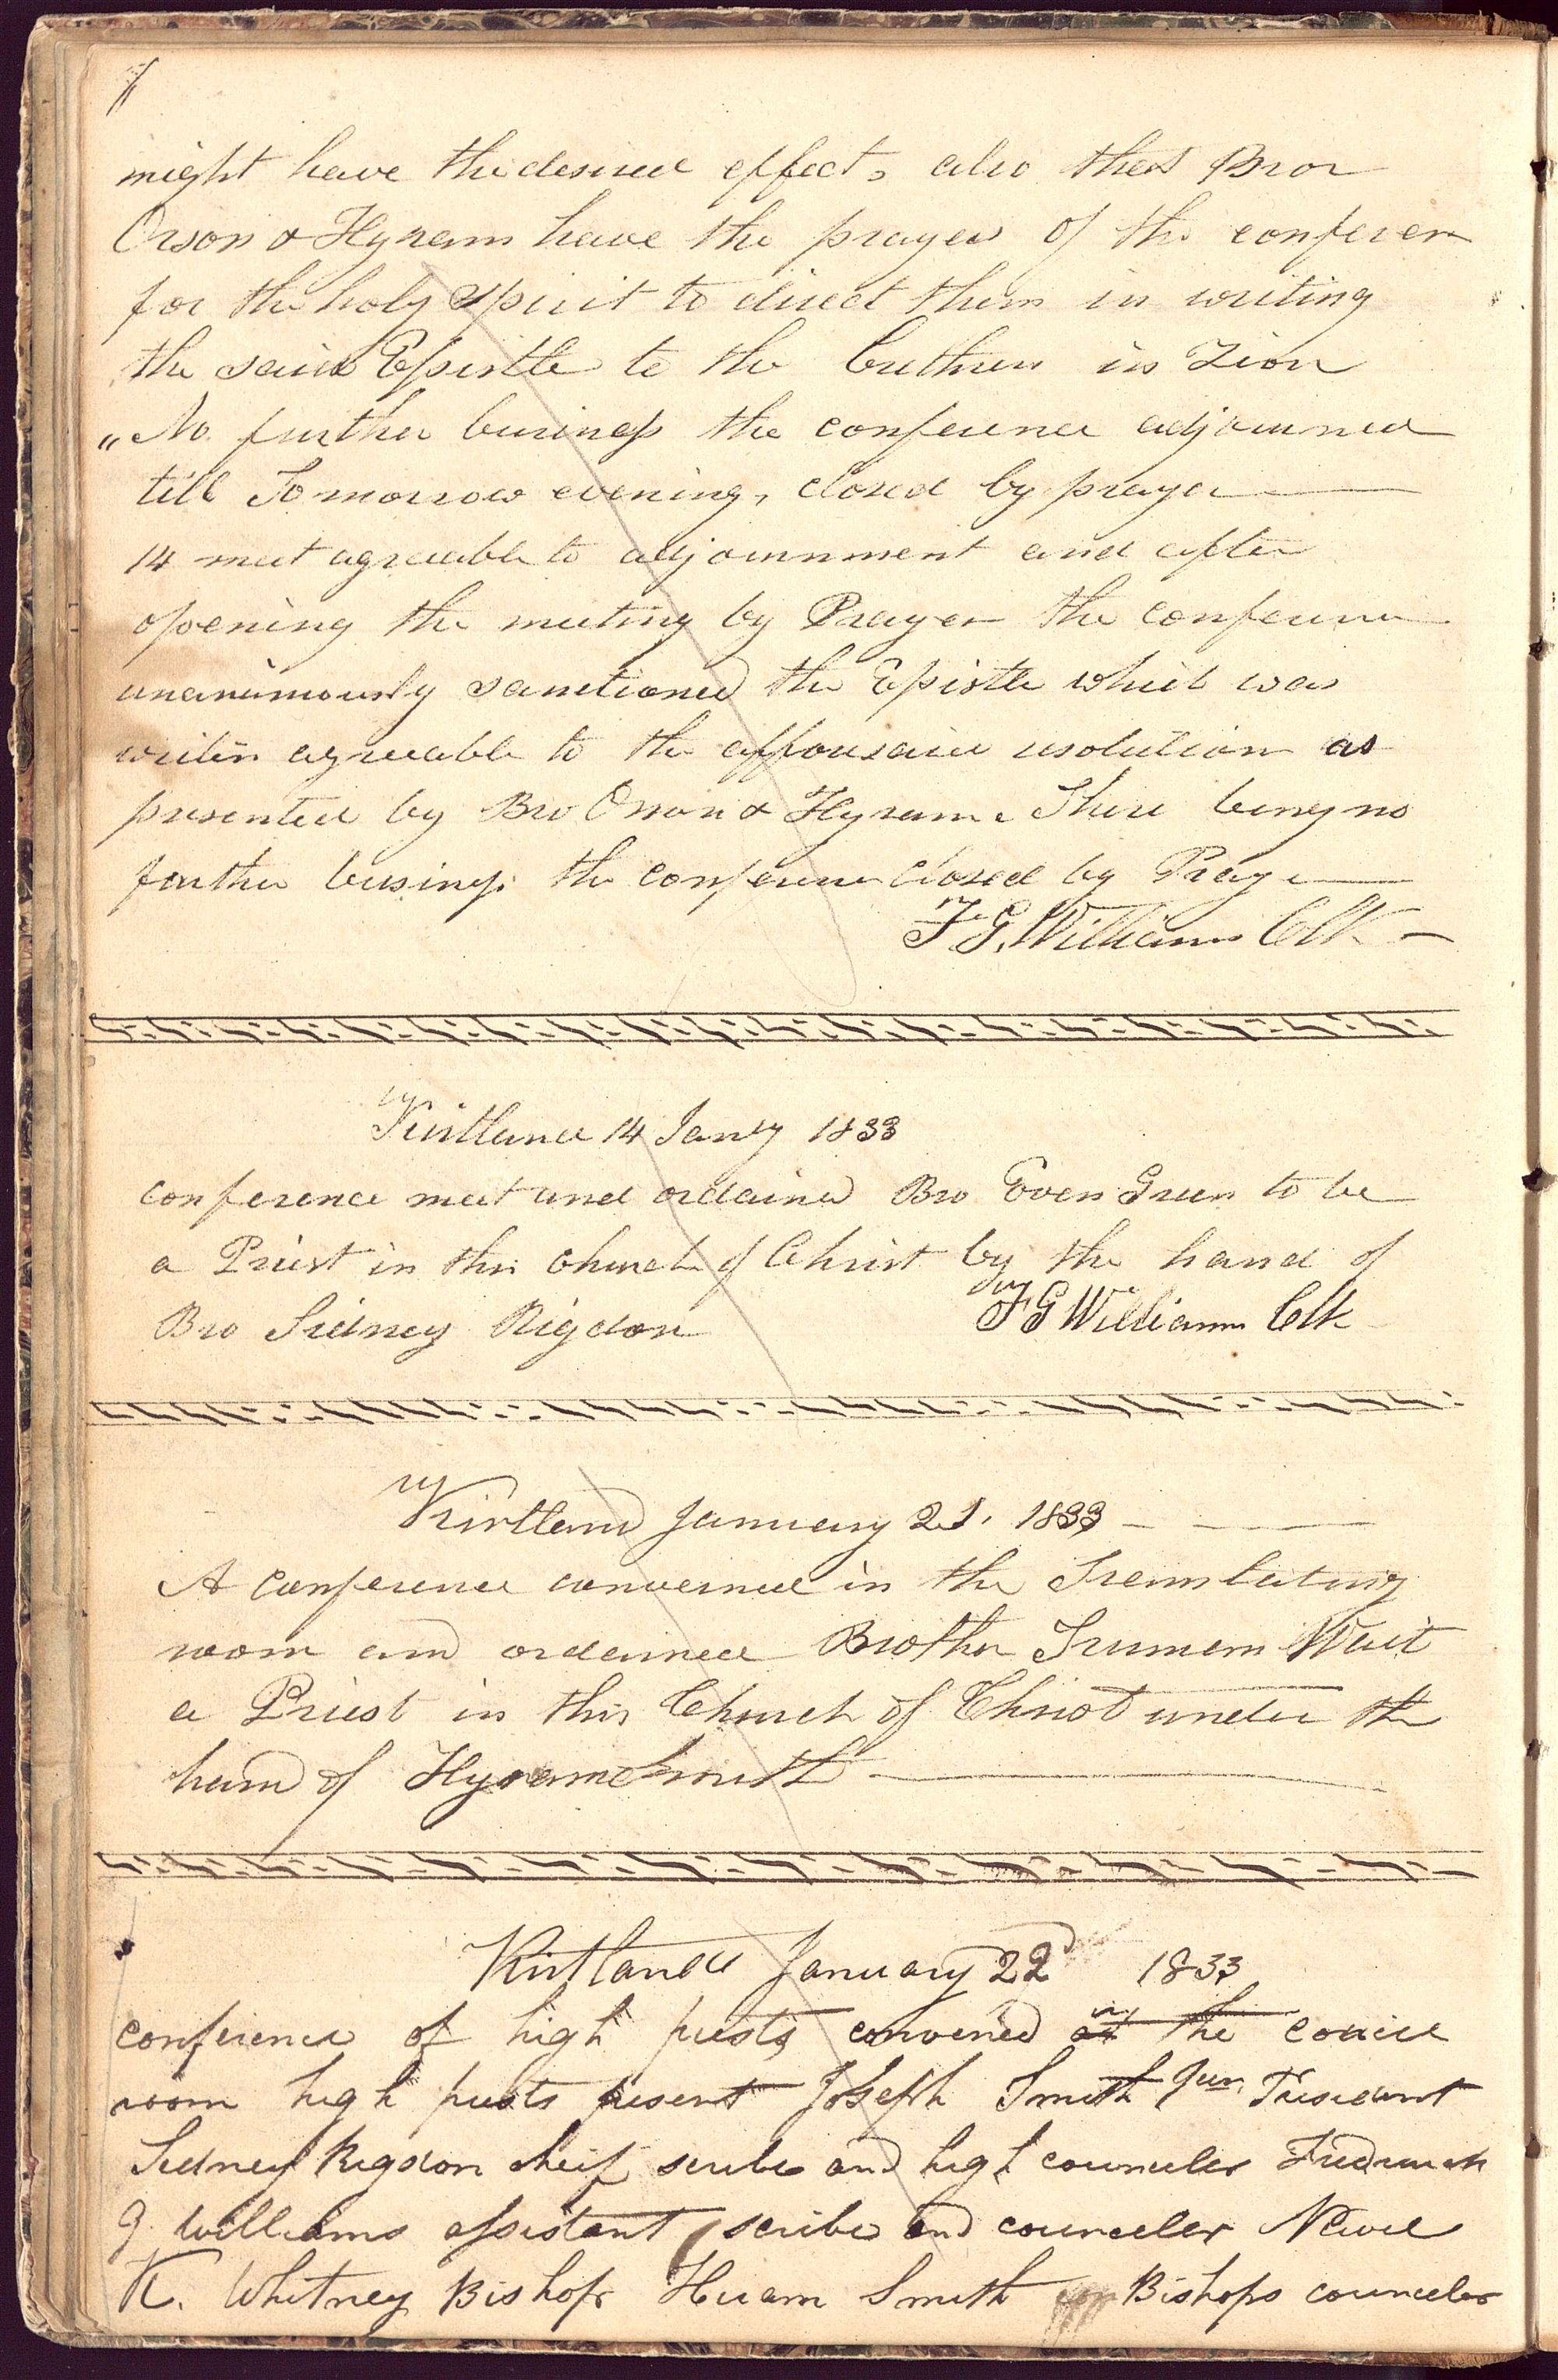 might have the desired effect, also that Bror
Orson & Hyram have the prayer of this conferen
for the holy spirit to direct them in writing
the said Epistle to the brethren in Zion
"No further business the conference adjourned
till Tomorrow evening, closed by prayer
14 meet agreeable to adjournment and after
opening the meeting by Prayer the conference
unanimously sanctioned the Epistle which was
writen agreeable to the afforesaid resolution as
presented by Bro Orson & Hyram. There being no
further business the conference closed by Prayer
F G. Williams Clk
Kirtland 14 Jany 1833
conference meet and ordained Bro Even Green to be
a Priest in this church of Christ by the hand of
Bro Sidney Rigdon
F G Williams Clk
Kirtland January 21. 1833
A conference convened in the Trenslating
room and ordained Brother Trumem Wait
a Priest in this Church of Christ under the
hand of Hyram Smith
Kirtland January 22d 1833
conference of high priests convened in at the counсil
room high priests present Joseph Smith Jun, President
Sidney Rigdon cheif scribe and high counceler Fredrick
G. Williams assistant scribe and counceler Newel
K. Whitney Bishop Hiram Smith Bishops counceler